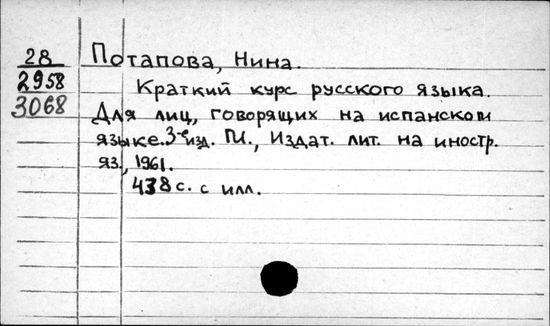 28
2958
3068
Потапова, Нина.
Краткий курс русского языка.
Для лиц, говорящих на испанском
языке. 3-е изд. М., Издат. лит. на иностр.
яз., 1961.
438 с. с илл.